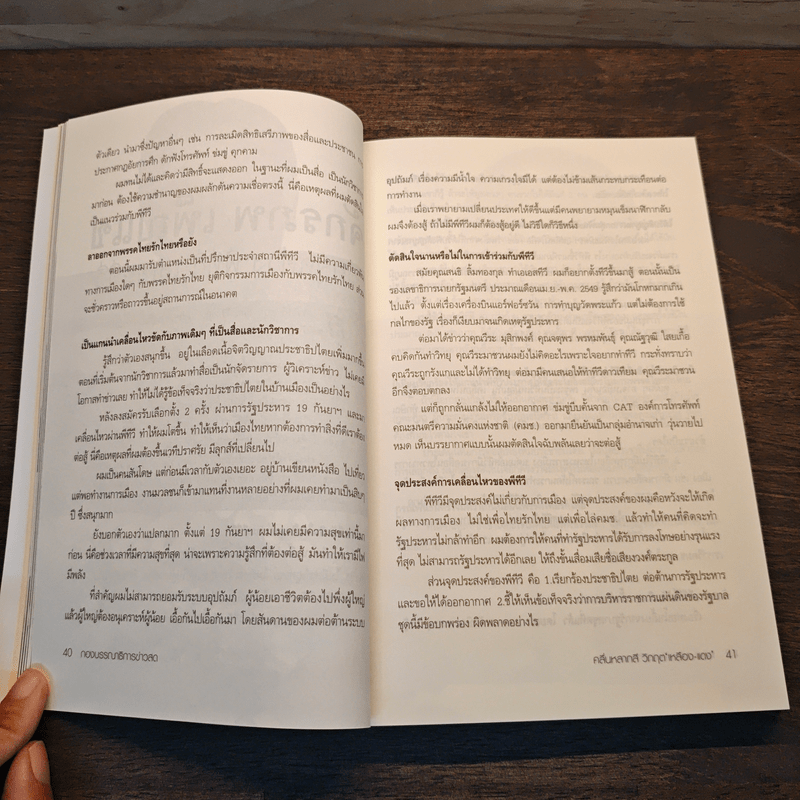 ตัวเดียว นำมาซึ่งปัญหาอื่นๆ เช่น การละเมิดสิทธิเสรีภาพของสื่อและประชาชน
ประกาศกฎอัยการศึก ดักฟังโทรศัพท์ ข่มขู่ คุกคาม
ผมทนไม่ได้และคิดว่ามีสิทธิ์จะแสดงออก ในฐานะที่ผมเป็นสื่อ เป็นนักวิชาการ
มาก่อน ต้องใช้ความชำนาญของผมผลักดันความเชื่อตรงนี้ นี่คือเหตุผลที่ผมตัดสินใจ
เป็นแนวร่วมกับพีทีวี
ลาออกจากพรรคไทยรักไทยหรือยัง
ตอนนี้ผมมารับตำแหน่งเป็นที่ปรึกษาประจำสถานีพีทีวี ไม่มีความเกี่ยวพัน
ทางการเมืองใดๆ กับพรรคไทยรักไทย ยุติกิจกรรมการเมืองกับพรรคไทยรักไทย ส่วน
จะชั่วคราวหรือถาวรขึ้นอยู่สถานการณ์ในอนาคต
เป็นแกนนำเคลื่อนไหวขัดกับภาพเดิมๆ ที่เป็นสื่อและนักวิชาการ
รู้สึกว่าตัวเองสนุกขึ้น อยู่ในเลือดเนื้อจิตวิญญาณประชาธิปไตยเพิ่มมากขึ้น
ตอนที่เริ่มต้นจากนักวิชาการแล้วมาทำสื่อเป็นนักจัดรายการ ผู้วิเคราะห์ข่าว ไม่เคยมี
โอกาสทำข่าวเลย ทำให้ไม่ได้รู้ข้อเท็จจริงว่าประชาธิปไตยในบ้านเมืองเป็นอย่างไร
หลังลงสมัครรับเลือกตั้ง 2 ครั้ง ผ่านการรัฐประหาร 19 กันยาฯ และมา
เคลื่อนไหวผ่านพีทีวี ทำให้ผมโตขึ้น ทำให้เห็นว่าเมืองไทยหากต้องการทำสิ่งที่ดีเราต้อง
ต่อสู้ นี่คือเหตุผลที่ผมต้องขึ้นเวทีปราศรัย มีลุกส์ที่เปลี่ยนไป
ผมเป็นคนสันโดษ แต่ก่อนมีเวลากับตัวเองเยอะ อยู่บ้านเขียนหนังสือ ไปเที่ยว
แต่พอทำงานการเมือง งานมวลชนก็เข้ามาแทนที่งานหลายอย่างที่ผมเคยทำมาเป็นสิบๆ
ปี ซึ่งสนุกมาก
ยังบอกตัวเองว่าแปลกมาก ตั้งแต่ 19 กันยาฯ ผมไม่เคยมีความสุขเท่านี้มา
ก่อน นี่คือช่วงเวลาที่มีความสุขที่สุด น่าจะเพราะความรู้สึกที่ต้องต่อสู้ มันทำให้เรามีไฟ
มีพลัง
ที่สำคัญผมไม่สามารถยอมรับระบบอุปถัมภ์ ผู้น้อยเอาชีวิตต้องไปพึ่งผู้ใหญ่
แล้วผู้ใหญ่ต้องอนุเคราะห์ผู้น้อย เอื้อกันไปเอื้อกันมา โดยสันดานของผมต่อต้านระบบ
40 กองบรรณาธิการข่าวสด
อุปถัมภ์ เรื่องความมีน้ำใจ ความเกรงใจมีได้ แต่ต้องไม่ข้ามเส้นกระทบกระเทือนต่อ
การทำงาน
เมื่อเราพยายามเปลี่ยนประเทศให้ดีขึ้นแต่มีคนพยายามหมุนเข็มนาฬิกากลับ
ผมจึงต้องสู้ ถ้าไม่มีพีทีวีผมก็ต้องสู้อยู่ดี ไม่วิธีใดก็วิธีหนึ่ง
ตัดสินใจนานหรือไม่ในการเข้าร่วมกับพีทีวี
สมัยคุณสนธิ ลิ้มทองกุล ทำเอเอสทีวี ผมก็อยากตั้งทีวีขึ้นมาสู้ ตอนนั้นเป็น
รองเลขาธิการนายกรัฐมนตรี ประมาณเดือนเม.ย.-พ.ค. 2549 รู้สึกว่ามันโกหกมากเกิน
ไปแล้ว ตั้งแต่เรื่องเครื่องบินแอร์ฟอร์ซวัน การทำบุญวัดพระแก้ว แต่ไม่ต้องการใช้
กลไกของรัฐ เรื่องก็เงียบมาจนเกิดเหตุรัฐประหาร
ต่อมาได้ข่าวว่าคุณวีระ มุสิกพงศ์ คุณจตุพร พรหมพันธุ์ คุณณัฐวุฒิ ใสยเกื้อ
คบคิดกันทำวิทยุ คุณวีระมาชวนผมยังไม่คิดอะไรเพราะใจอยากทำทีวี กระทั่งทราบว่า
คุณวีระถูกรังแกและไม่ได้ทำวิทยุ ต่อมามีคนเสนอให้ทำทีวีดาวเทียม คุณวีระมาชวน
อีกจึงตอบตกลง
แต่ก็ถูกกลั่นแกล้งไม่ให้ออกอากาศ ข่มขู่บีบคั้นจาก CAT องค์การโทรศัพท์
คณะมนตรีความมั่นคงแห่งชาติ (คมช.) ออกมายืนยันเป็นกลุ่มอำนาจเก่า วุ่นวายไป
หมด เห็นบรรยากาศแบบนั้นผมตัดสินใจฉับพลันเลยว่าจะต่อสู้
จุดประสงค์การเคลื่อนไหวของพีทีวี
พีทีวีมีจุดประสงค์ไม่เกี่ยวกับการเมือง แต่จุดประสงค์ของผมคือหวังจะให้เกิด
ผลทางการเมือง ไม่ใช่เพื่อไทยรักไทย แต่เพื่อไล่คมช. แล้วทำให้คนที่คิดจะทำ
รัฐประหารไม่กล้าทำอีก ผมต้องการให้คนที่ทำรัฐประหารได้รับการลงโทษอย่างรุนแรง
ที่สุด ไม่สามารถรัฐประหารได้อีกเลย ให้ถึงขั้นเสื่อมเสียชื่อเสียงวงศ์ตระกูล
ส่วนจุดประสงค์ของพีทีวี คือ 1.เรียกร้องประชาธิปไตย ต่อต้านการรัฐประหาร
และขอให้ได้ออกอากาศ 2.ชี้ให้เห็นข้อเท็จจริงว่าการบริหารราชการแผ่นดินของรัฐบาล
ชุดนี้มีข้อบกพร่อง ผิดพลาดอย่างไร
คลื่นหลากสี วิกฤต'เหลือง-แดง' 41